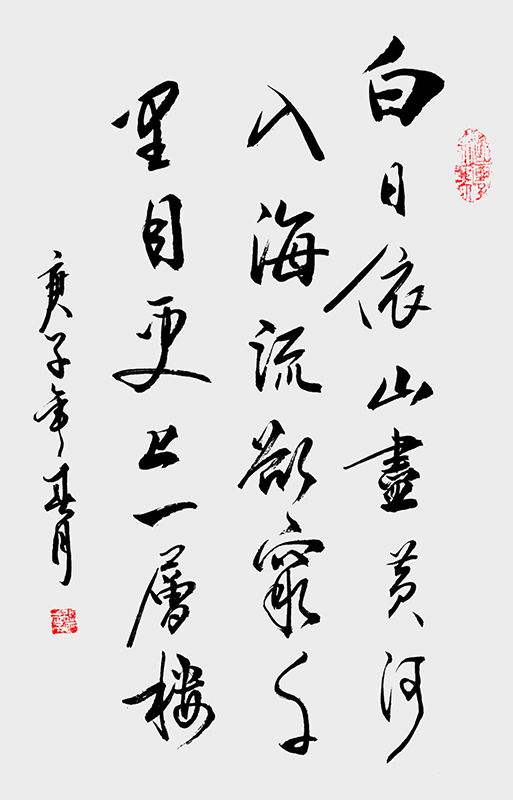 白日依山盡黄河
入海流欲窮千
里目更上一層楼
庚子年春月